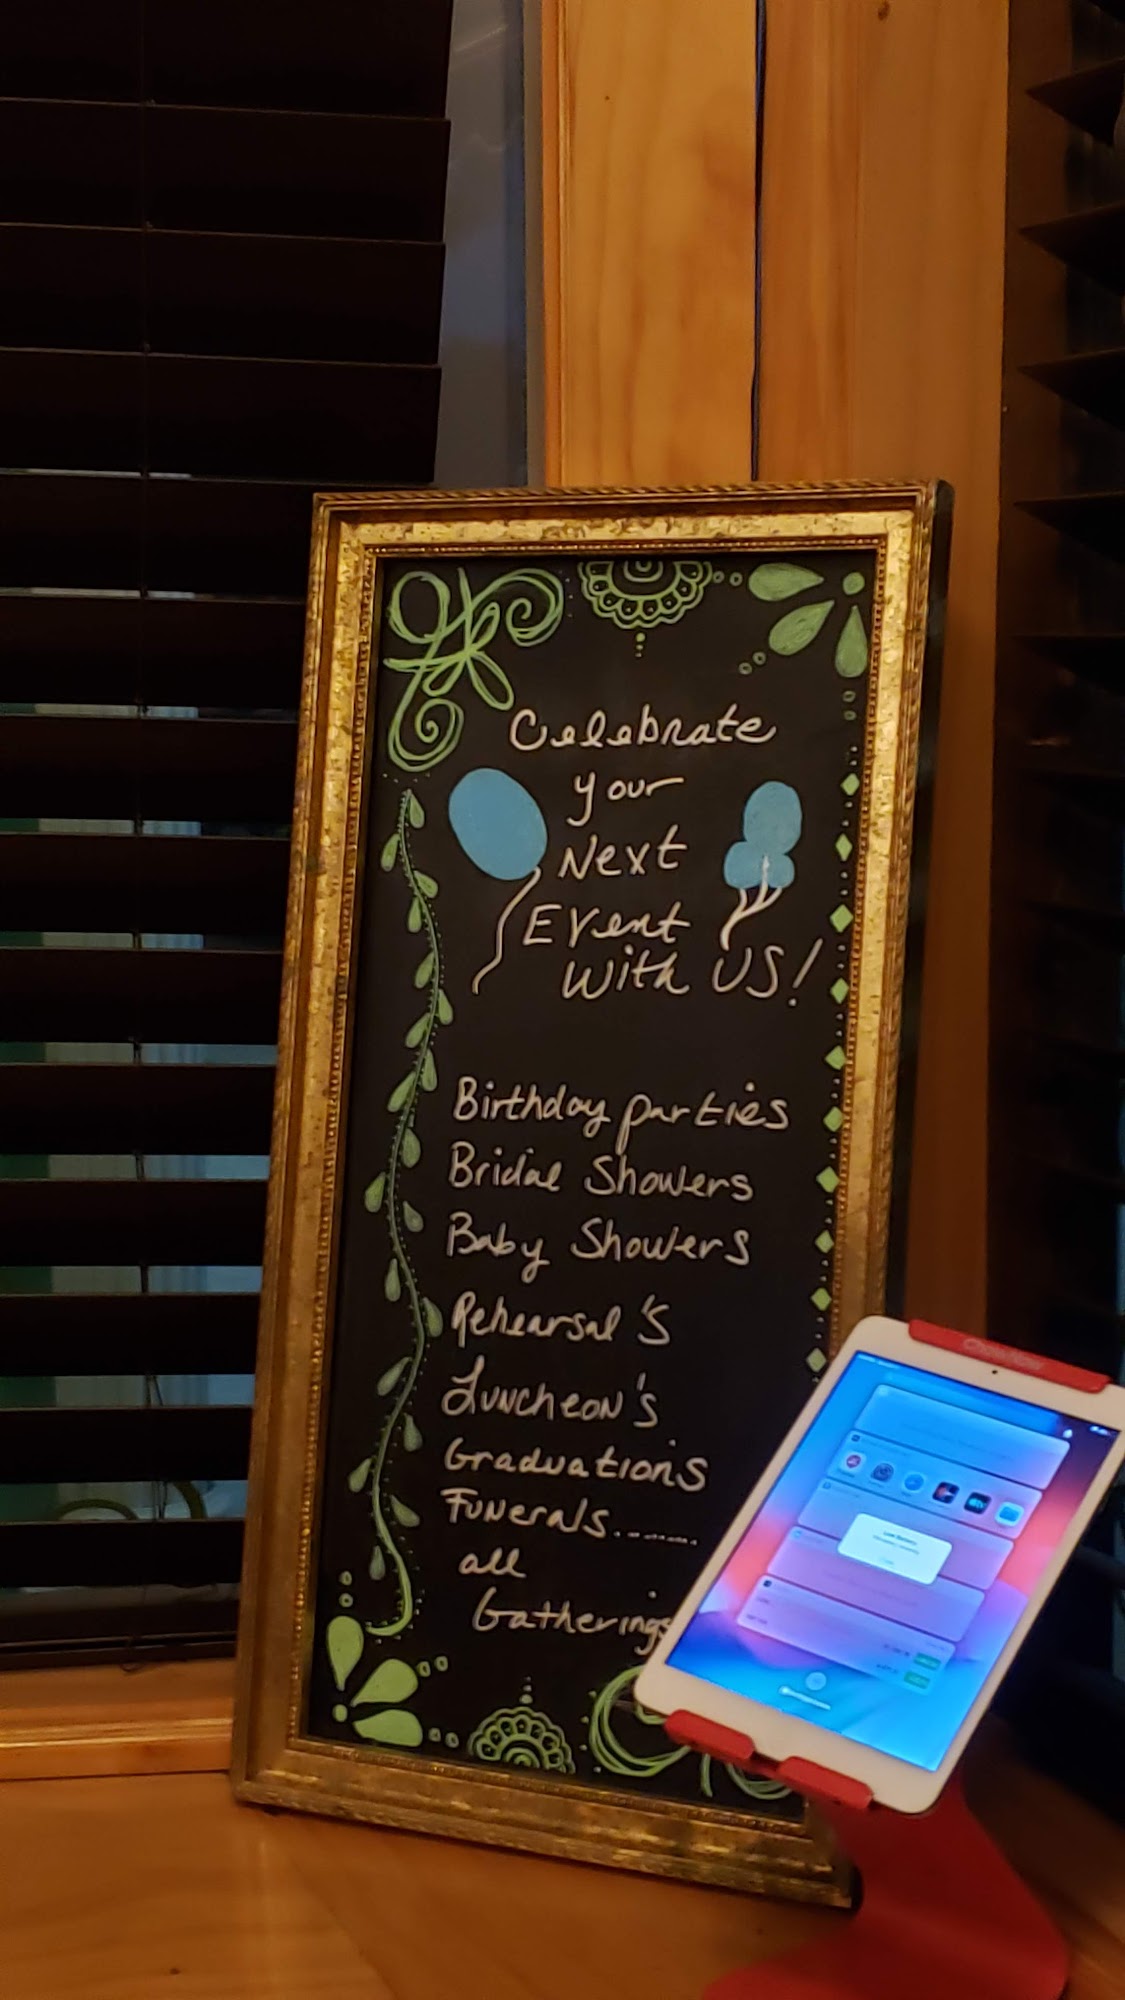 Celebrate
your
Next
Event
With US!
Birthday parties
Bridal Showers
Baby Showers
Rehearsal's
Luncheon's
Graduations
Funerals........
all
Gatherings
Low Battery